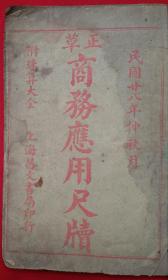 民國廿八年仲秋月
草正
商務應用尺牘
附珠算大全
上海昌文書局印行